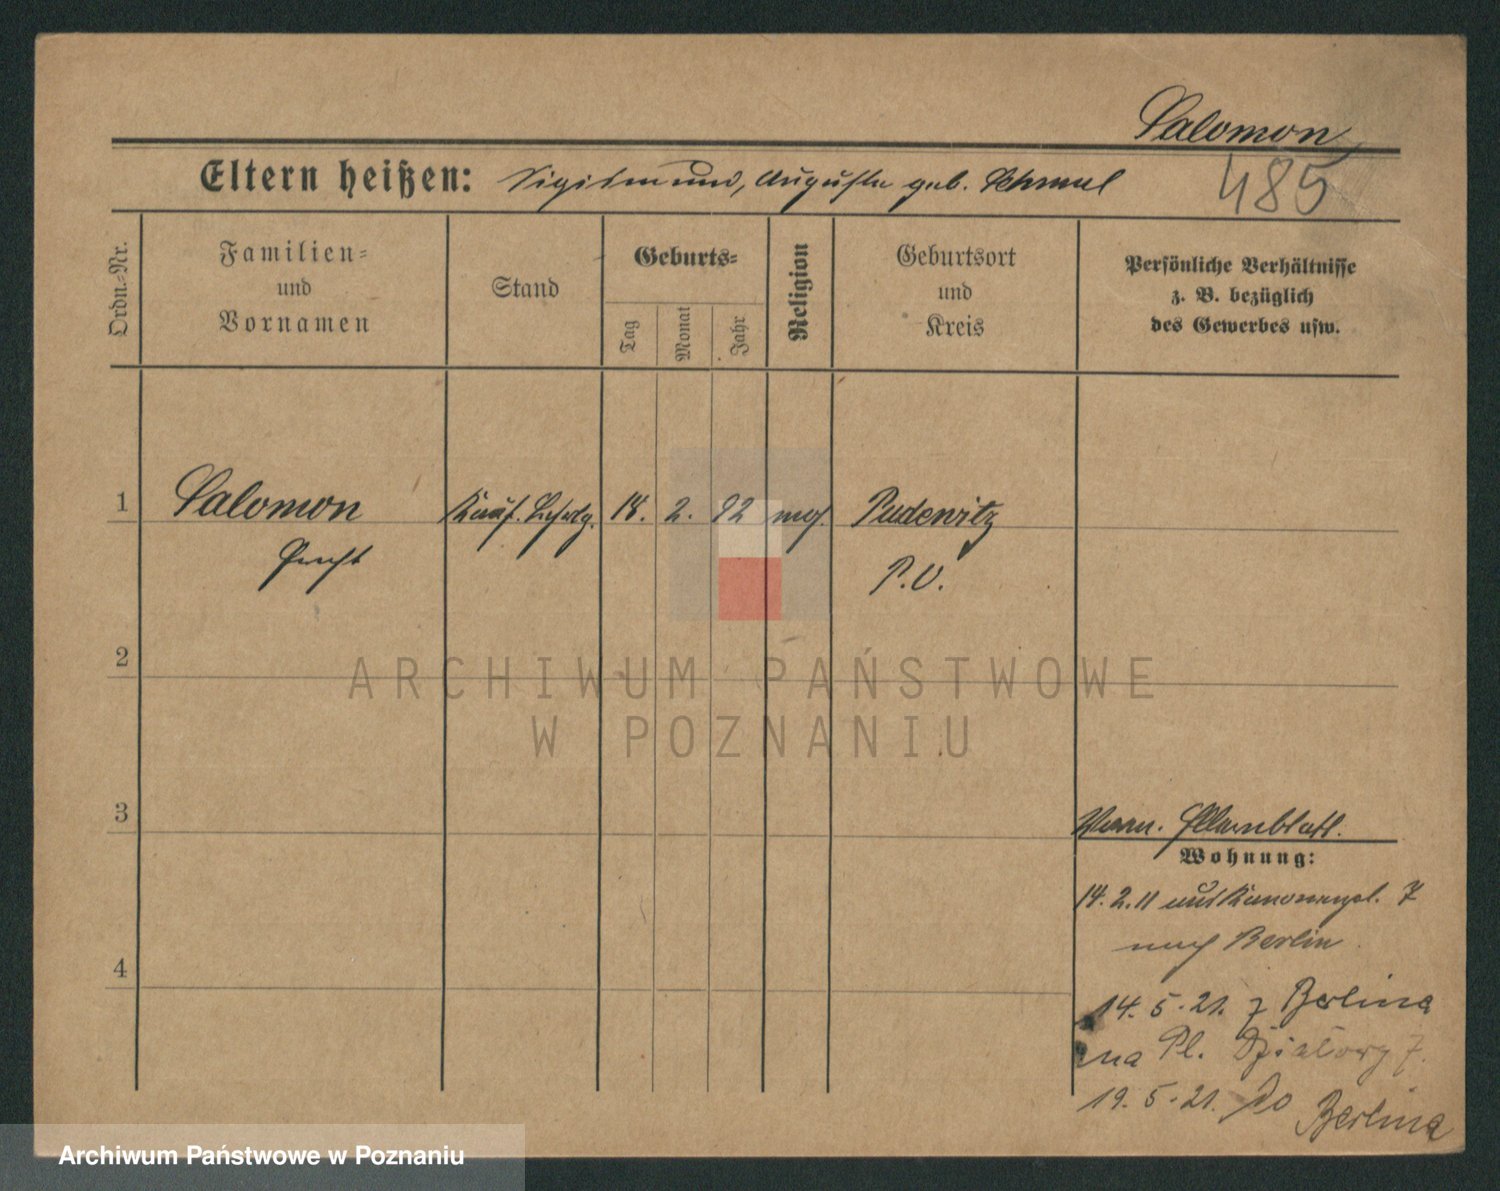 Salomon
485
Eltern heißen: Sigismund, Auguste geb. Schmul
Ordn.-Nr.
Familien-
und
Vornamen
Stand
Geburts-
Tag
Monat
Jahr
Religion
Geburtsort
und
Kreis
Persönliche Verhältnisse
z. B. bezüglich
des Gewerbes usw.
1 Salomon Kauf. 18. 2. 92 mos. Pudewitz
P.O.
2
ARCHIWUM PAŃSTWOWE
W POZNANIU
3
Elternblatt.
Wohnung:
14. 2. 11 aus Kanonenpl. 7
nach Berlin
4
14. 5. 21. z Berlina
na Pl. Działowy 7.
19. 5. 21. do
Berlina
Archiwum Państwowe w Poznaniu